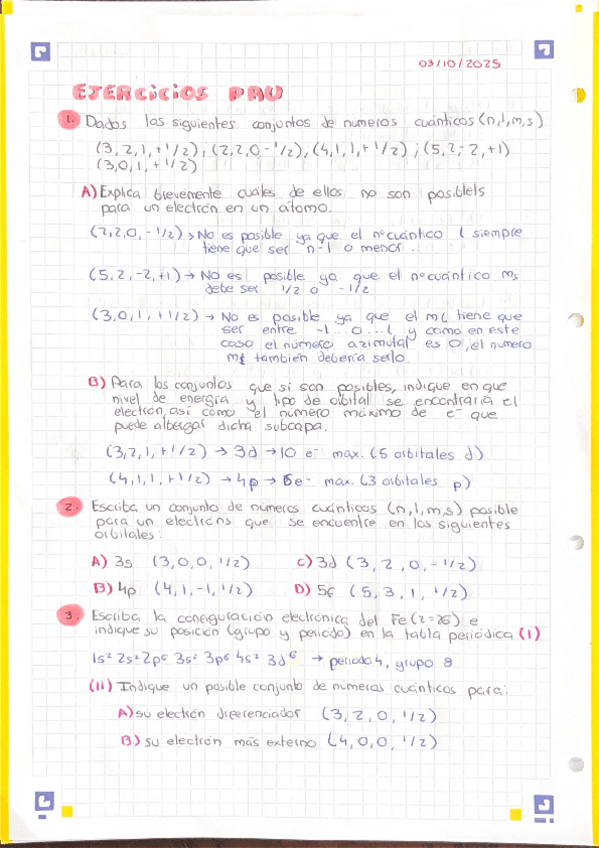 03/10/2025
EJERCICIOS PAU
1. Dados los siguientes conjuntos de numeros cuánticos (n,l,m,s)
(3,2,1,+1/2), (2,2,0-1/2), (4,1,1,+1/2) ; (5,2,-2,+1)
(3,0,1,+1/2)
A) Explica brevemente cuales de ellos no son posiblels
para un electrón en un átomo.
(2,2,0,-1/2) → No es posible ya que el nºcuántico l siempre
tiene que ser n-1 o menor.
(5,2,-2,+1) → No es posible ya que el nºcuántico ms
debe ser 1/2 o -1/2
(3,0,1,+1/2) → No es posible ya que el ml tiene que
ser entre -l...0...l, y como en este
caso el número azimutal es 0, el numero
ml también debería serlo.
B) Para los conjuntos que si son posibles, indique en que
nivel de energía y tipo de orbital se encontraría el
electron, así como el número máximo de e- que
puede albergar dicha subcapa.
(3,2,1,+1/2) → 3d → 10 e- max. (5 orbitales d)
(4,1,1,+1/2) → 4p → 6e- max. (3 orbitales p)
2. Escriba un conjunto de números cuánticos (n,l,m,s) posible
para un electrons que se encuentre en los siguientes
orbitales:
A) 3s (3,0,0,1/2) C) 3d (3,2,0,-1/2)
B) 4p (4,1,-1,1/2) D) 5f (5,3,1,1/2)
3. Escriba la configuración electrónica del Fe (z=26) e
indique su posición (grupo y periodo) en la tabla periódica (I)
1s² 2s² 2p⁶ 3s² 3p⁶ 4s² 3d⁶ → periodo 4, grupo 8
(II) Indique un posible conjunto de números cuánticos para:
A) su electrón diferenciador (3,2,0,1/2)
B) su electrón más externo (4,0,0,1/2)